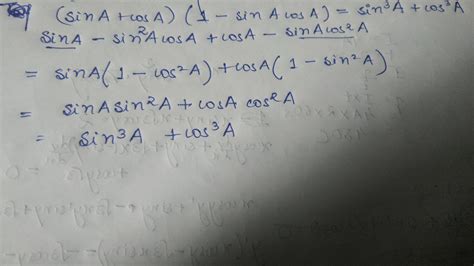 (sinA + cosA) (1 - sinA cosA) = sin³A + cos³A
sinA - sin²AcosA + cosA - sinAcos²A
= sinA(1 - cos²A) + cosA(1 - sin²A)
= sinAsin²A + cosA cos²A
= sin³A + cos³A